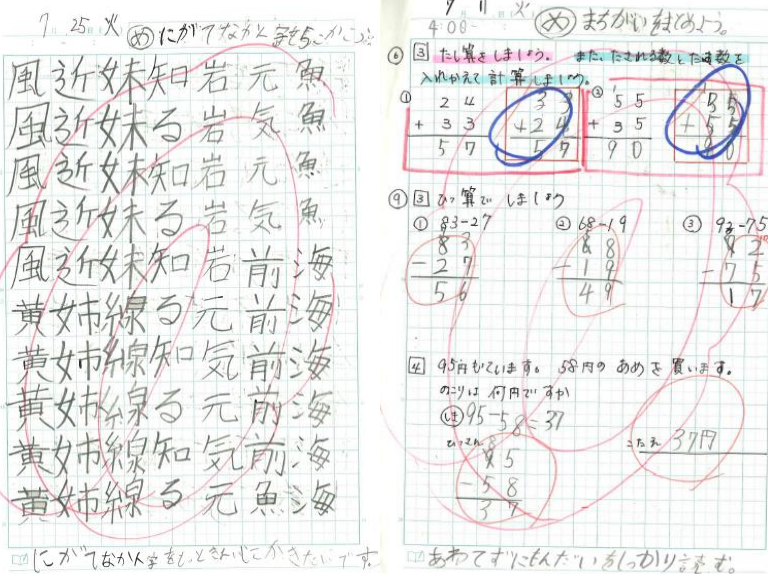 7 25 火
め にがてなかん字を5こかこう。
風 近 妹 知 岩 元 魚
風 近 妹 る 岩 気 魚
風 近 妹 知 岩 元 魚
風 近 妹 る 岩 気 魚
風 近 妹 知 岩 前 海
黄 姉 線 る 元 前 海
黄 姉 線 知 気 前 海
黄 姉 線 る 元 前 海
黄 姉 線 知 気 前 海
黄 姉 線 る 元 魚 海
にがてなかん字を
です。
11 火
4:00~
め まちがいをみてめよう。
⑥ 3 たし算をしましょう。また、たされる数とたす数を
入れかえて計算しましょう。
① 24
+ 33
57
33
+ 24
57
② 55
+ 35
90
35
+ 55
90
⑨ 3 ひっ算で しましょう
① 83-27
83
- 27
56
② 68-19
68
- 19
49
③ 92-75
92
- 75
17
4 95円もっています。58円の あめを買います。
のこりは 何円ですか
しき 95-58=37
ひっさん
95
- 58
37
こたえ 37円
あわてずにもんだいをしっかり読む。